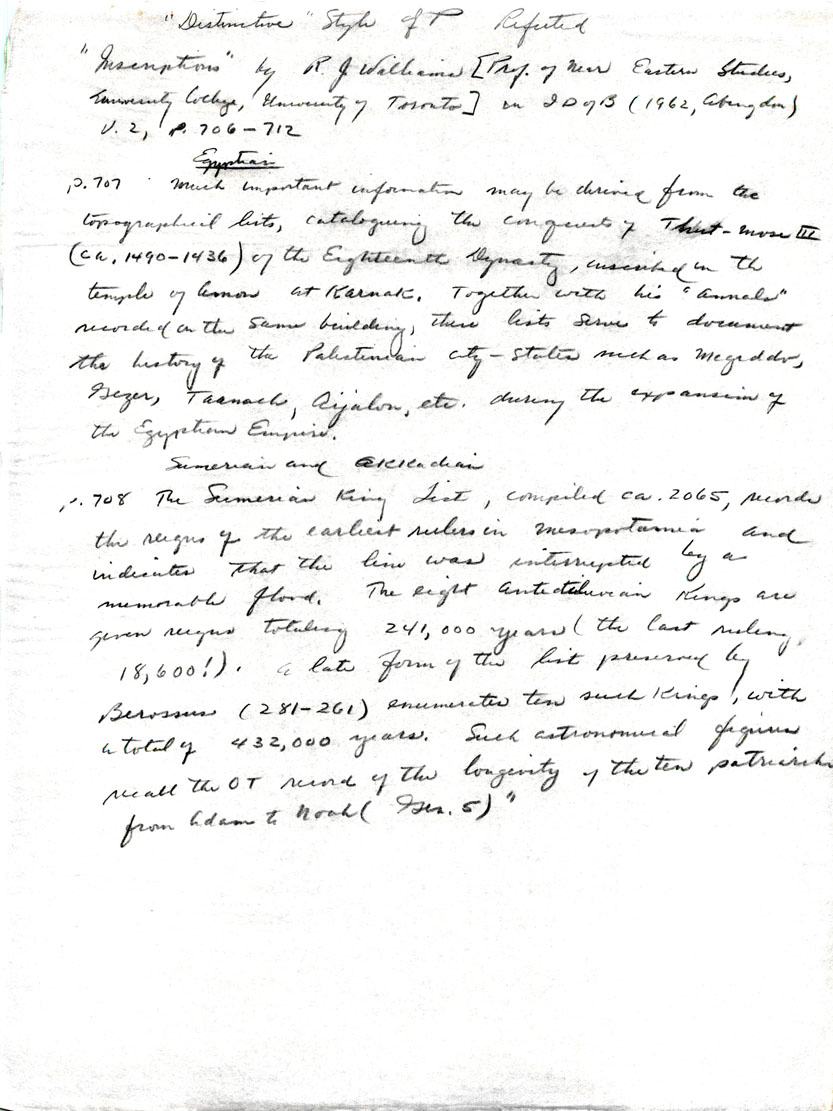 "Distinctive" Style of P Refuted
"Inscriptions" by R. J. Williams [Prof. of Near Eastern Studies,
University College, University of Toronto] in IDofB (1962, Abingdon)
V. 2, p. 706-712
Egyptian
p. 707 Much important information may be derived from the
topographical lists, cataloguing the conquests of Thut-mose III
(ca. 1490-1436) of the Eighteenth Dynasty, inscribed in the
temple of Amon at Karnak. Together with his "annals"
recorded on the same building, these lists serve to document
the history of the Palestinian city-states such as Megiddo,
Gezer, Taanach, Aijalon, etc. during the expansion of
the Egyptian Empire.
Sumerian and Akkadian
p. 708 The Sumerian King List, compiled ca. 2065, records
the reigns of the earliest rulers in Mesopotamia and
indicates that the line was interrupted by a
memorable flood. The eight antediluvian Kings are
given reigns totaling 241,000 years (the last ruling
18,600!). A late form of the list preserved by
Berossus (281-261) enumerates ten such Kings, with
a total of 432,000 years. Such astronomical figures
recall the OT record of the longevity of the ten patriarchs
from Adam to Noah (Gen. 5)"